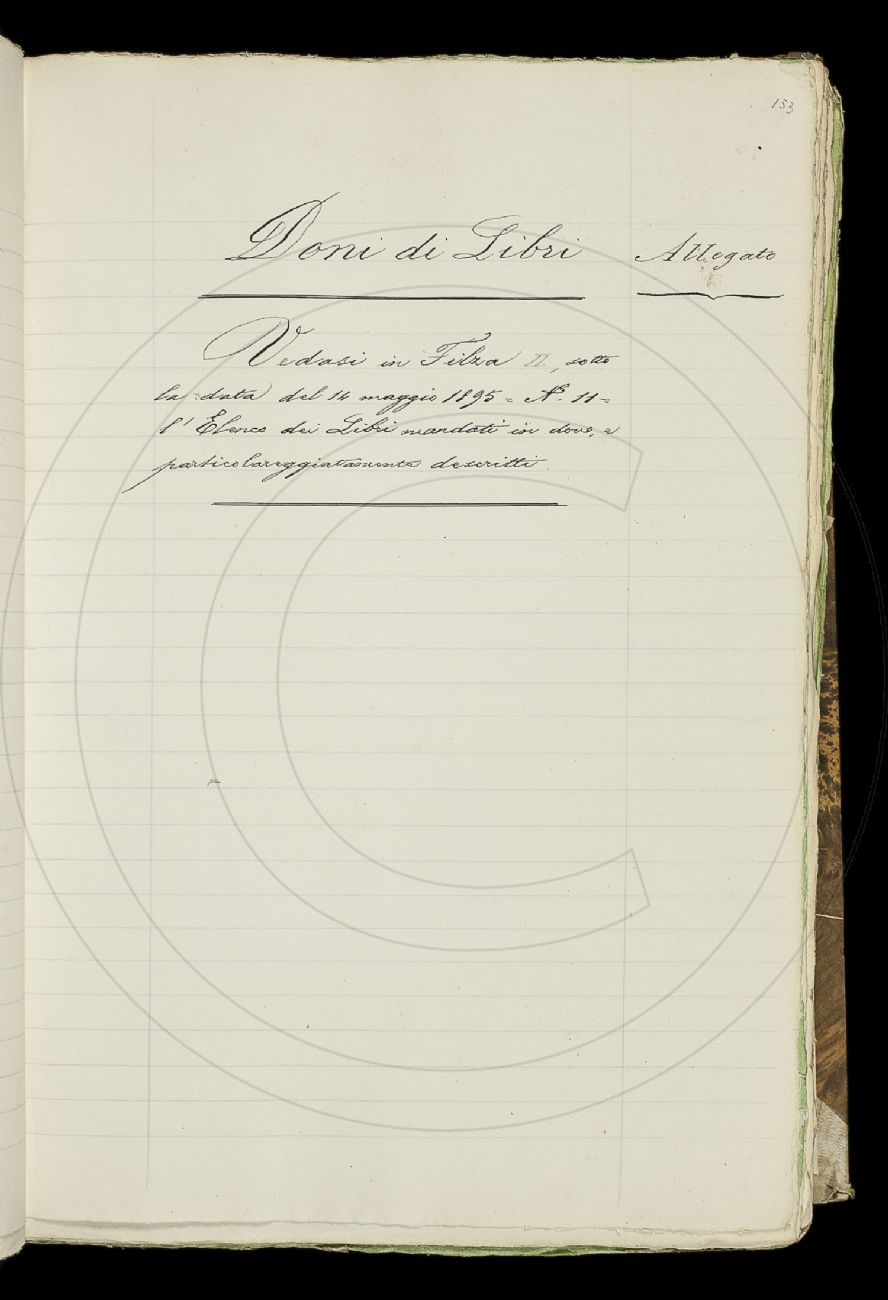 153
Doni di Libri
Allegato
Vedasi in Filza II, sotto
la data del 14 maggio 1895 = N.º 11 =
l'Elenco dei Libri mandati in dono, e
particolareggiatamente descritti.